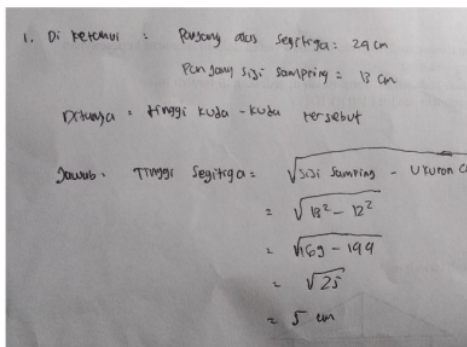 1. Di ketahui : Panjang alas segitiga = 24 cm
Panjang sisi samping = 13 cm
Ditanya = tinggi kuda - kuda tersebut
Jawab : Tinggi segitiga = √sisi samping - Ukuran
= √13² - 12²
= √169 - 144
= √25
= 5 cm